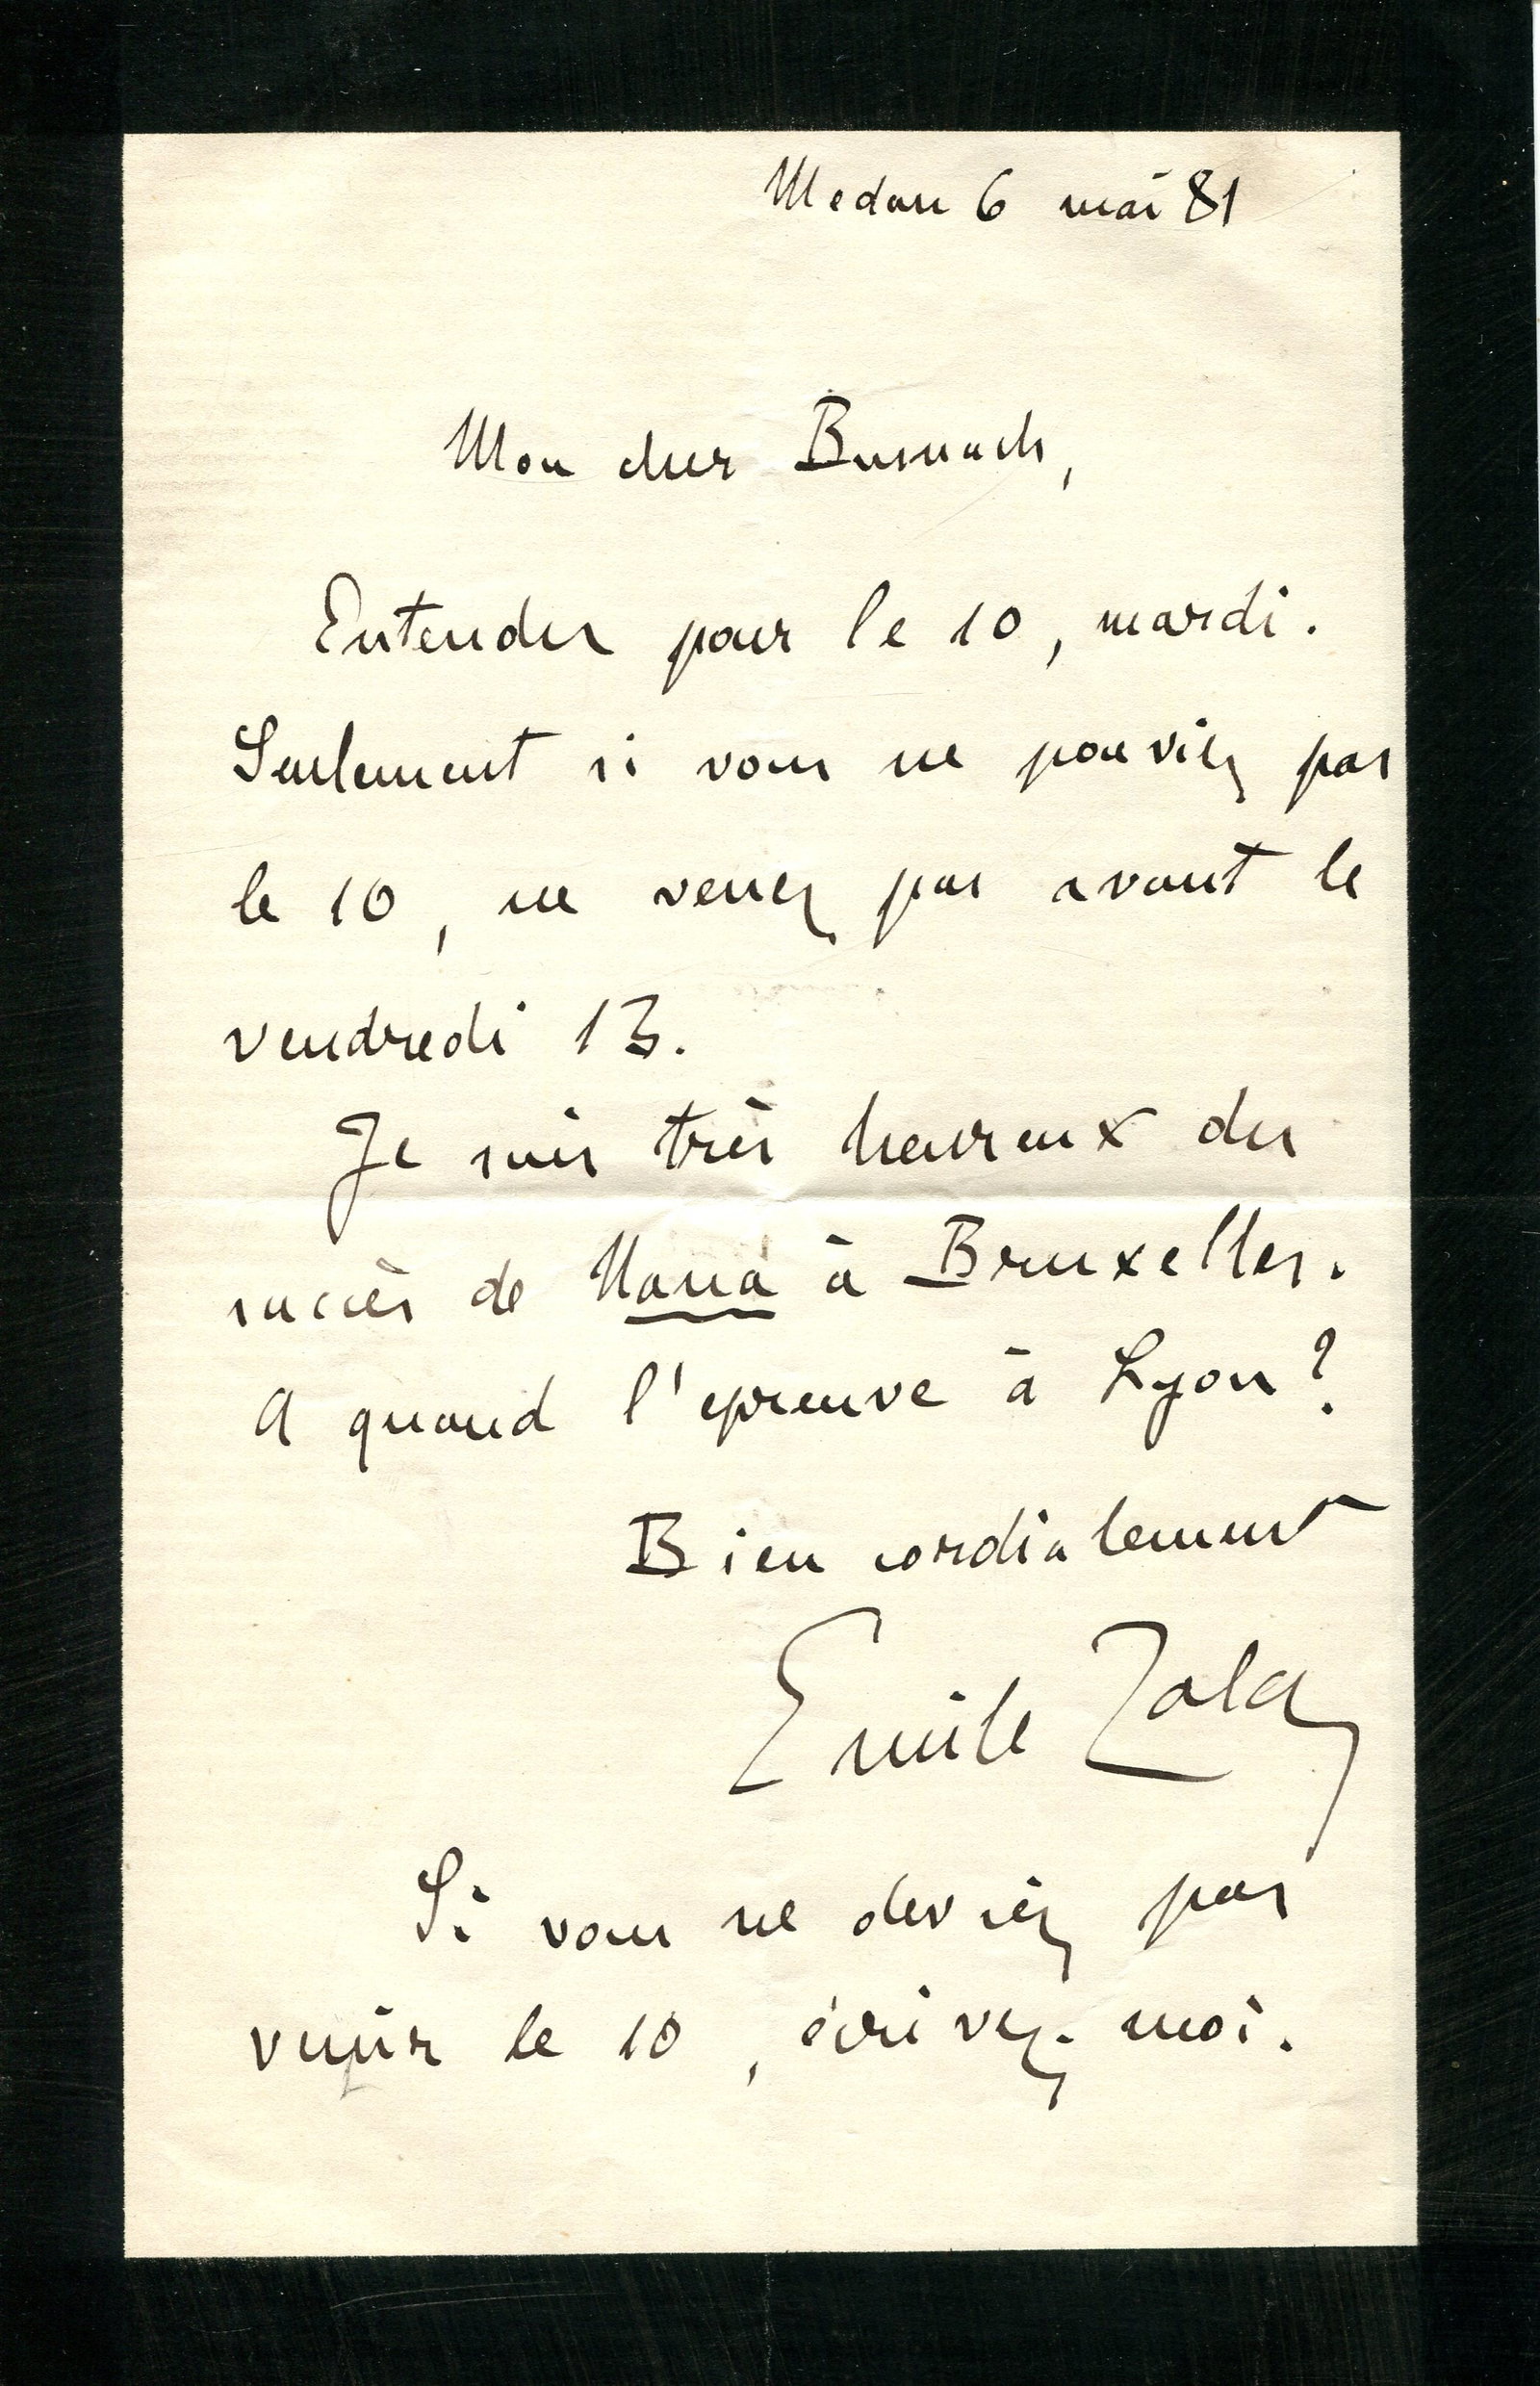 Medan 6 mai 81
Mon cher Busnach,
Entendu pour le 10, mardi.
Seulement si vous ne pouviez pas
le 10, ne venez pas avant le
vendredi 13.
Je suis très heureux du
succès de Nana à Bruxelles.
A quand l'épreuve à Lyon ?
Bien cordialement
Emile Zola
Si vous ne deviez pas
venir le 10, écrivez-moi.